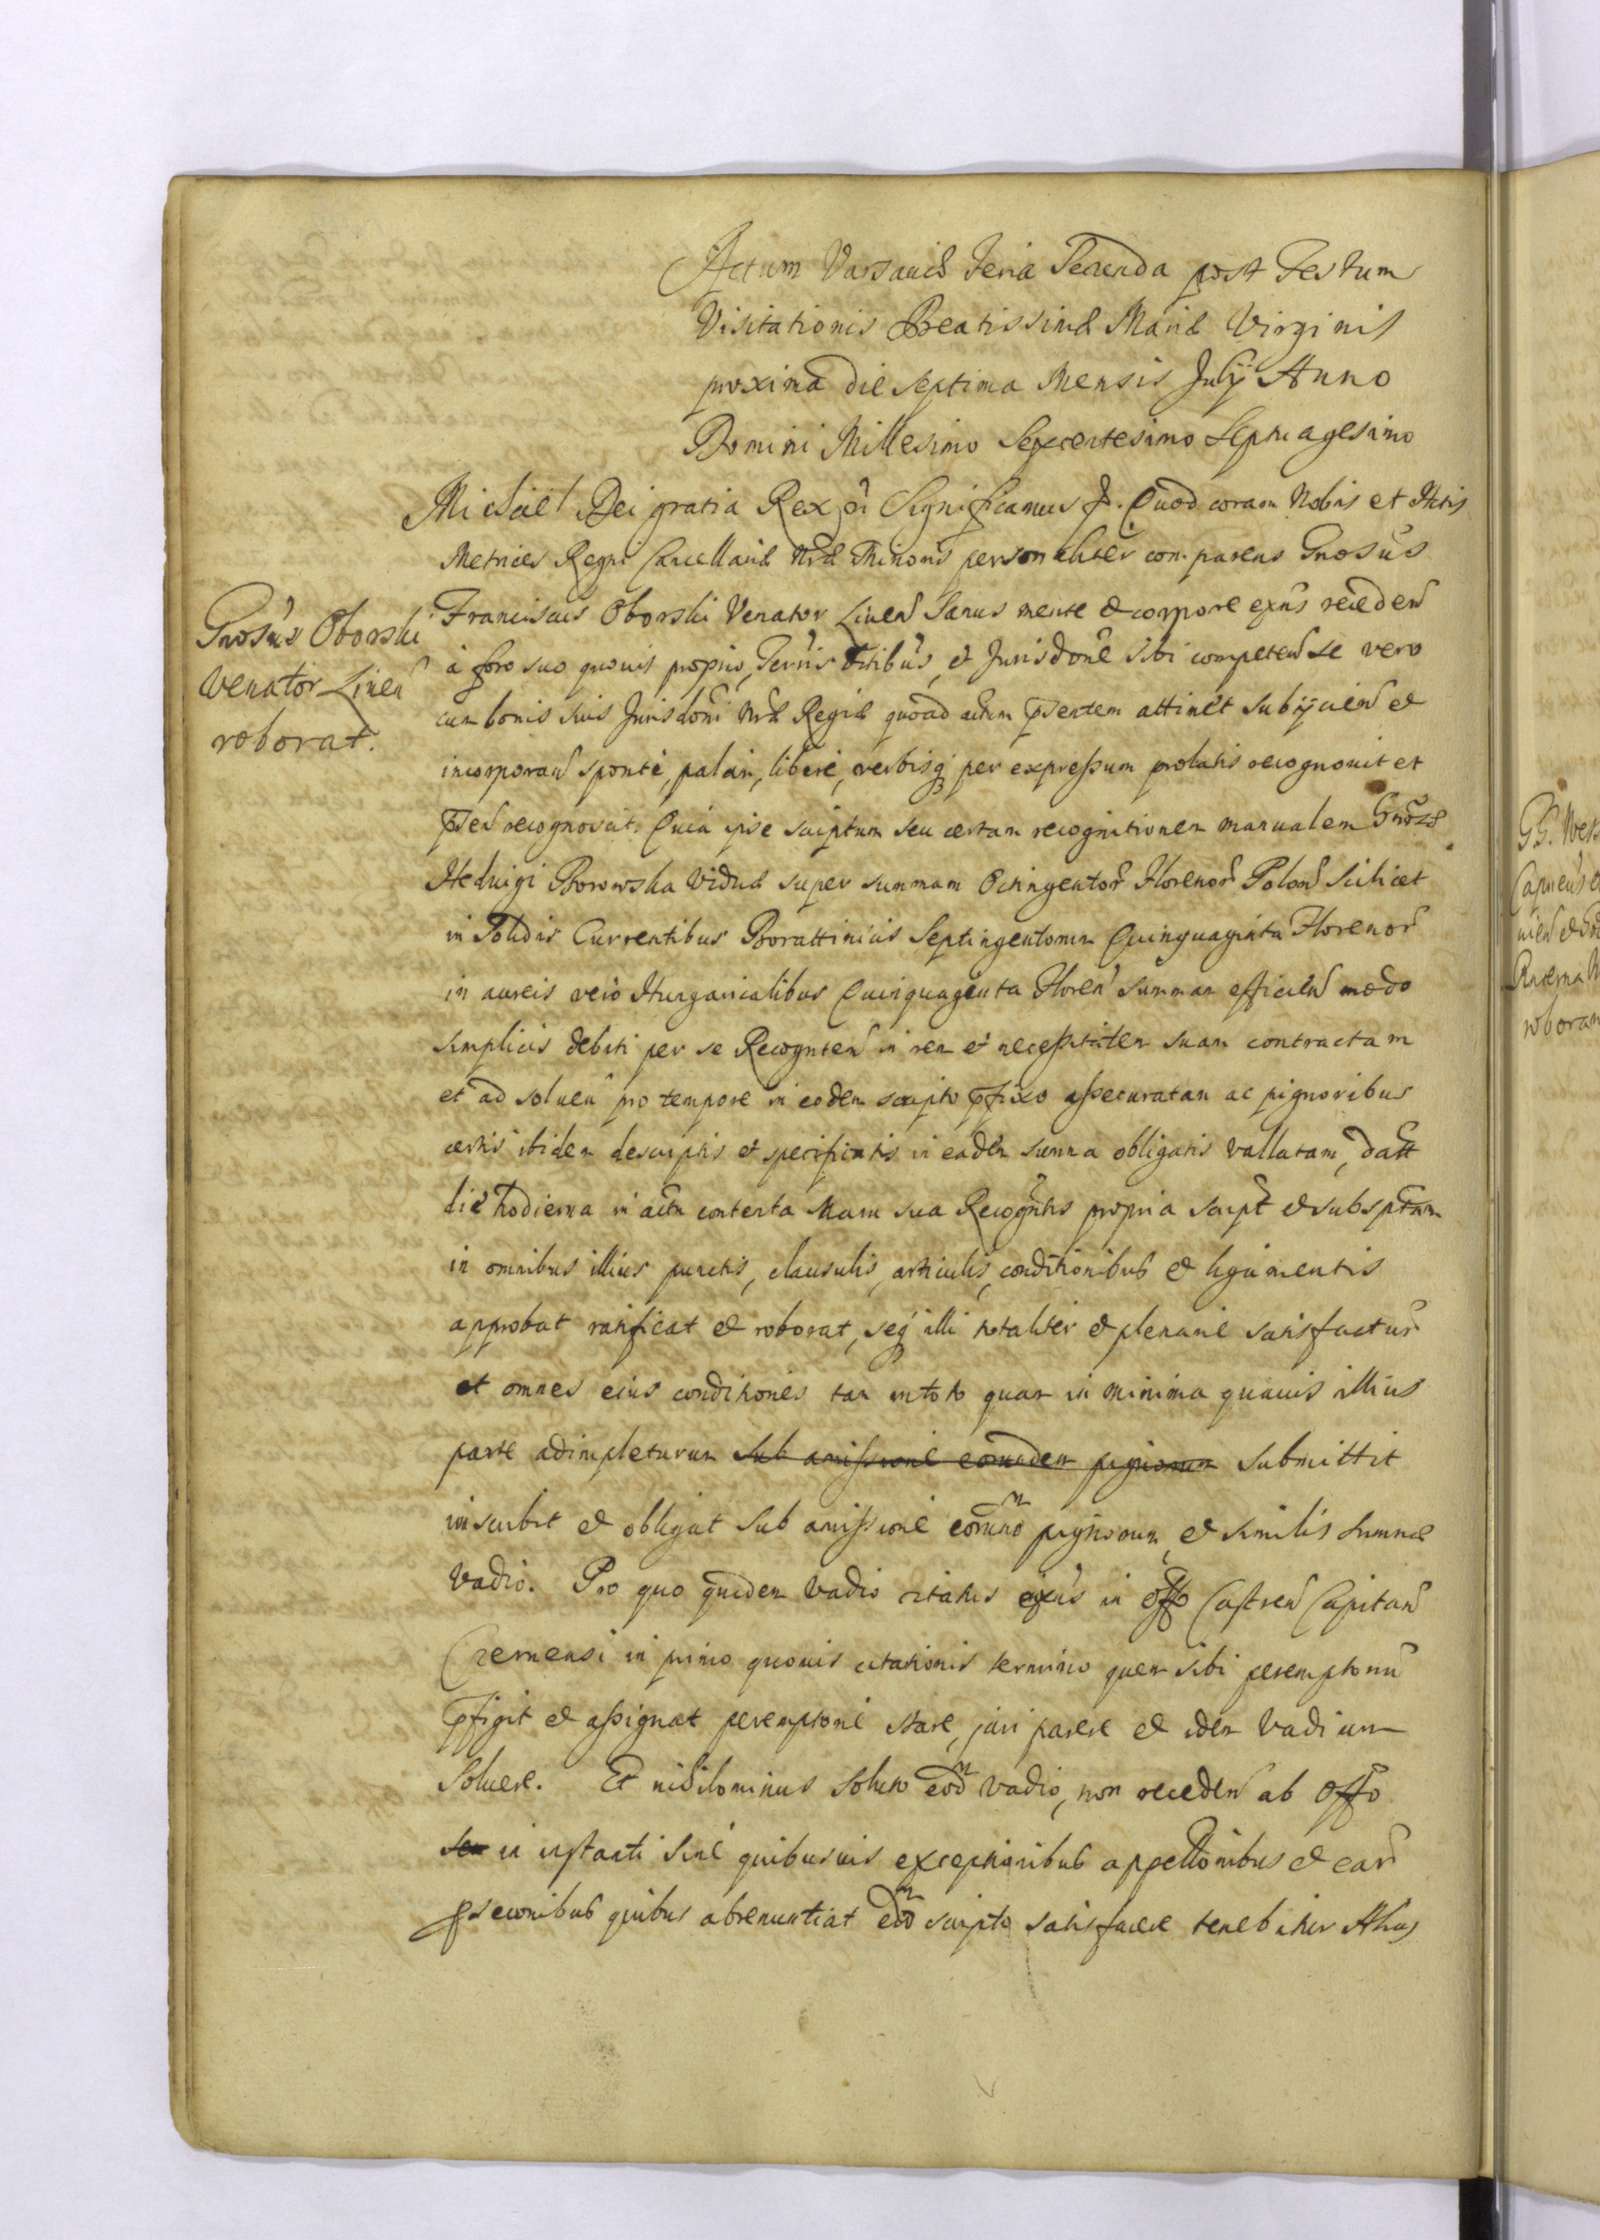 Actum Varsaviæ Feria Secunda post Festum
Visitationis Beatissimæ Mariæ Virginis
proxima die septima Mensis July Anno
Domini Millesimo Sexcentesimo Septuagesimo
Michael Dei gratia Rex Significamus Quod coram Nobis et Actis
Metrices Regni Cancellariæ Nræ Minoris personaliter comparens Gnosus
Gnosus Oborski
Venator Liven
roborat.
Franciscus Oborski Venator Liven Sanus mente et corpore exns receden
à foro suo quovis proprio, Terris Ditibus, et Jurisdone sibi competen se vero
cum bonis suis Jurisdoni Nræ Regiæ quoad actum pntem attinet subijcien et
incorporan sponte, palam, libere, verbisq per expressum prolatis recognovit et
recognoscit. Quia ipse scriptum seu certam recognitionem manualem Gnosæ
Hedvigi Borowska Viduæ super summam Octingentor Florenor Polon scilicet
in Solidis Currentibus Borattinicis Septingentorum Quinquaginta Florenor
in aureis vero Hungaricalibus Quinquaginta Floren summam efficien modo
simplicis debiti per se Recognten in rem et necessitatem suam contractam
et ad solven pro tempore in eodem scripto pfixo assecuratam ac pignoribus
certis ibidem descriptis et specificatis in eadem summa obligatis vallatam, datt
die hodierna in actu contenta Manu sua Recogntis propria script et subsptam
in omnibus illius punctis, clausulis, articulis, conditionibus et ligamentis
approbat ratificat et roborat, seq illi totaliter et plenarie satisfactur
et omnes eius conditiones tam in toto quam in minima quavis illius
parte adimpleturum sub amissione eorundem pignorum submittit
inscribit et obligat sub amissione eorund pignorum, et similis summæ
Vadio. Pro quo quidem Vadio citatus in Offo Castren Capitan
Czernensi in primo quovis citationis termino quem sibi peremptorium
pfigit et assignat peremptorie stare, juri parere et idem Vadium
solvere. Et nihilominus soluto eod Vadio, non receden ab Offo
seu in instanti sine quibusvis exceptionibus appellonibus et ear
psecunibus quibus abrenuntiat eod scripto satisfacere tenebitur Actus